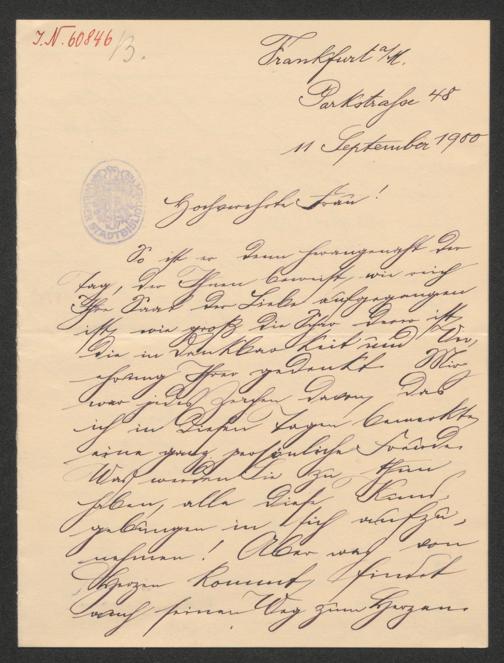 J.N. 60846
/3.
Frankfurt a/M.
Parkstrasse 48
11 September 1900
STADTBIBLIOTHEK
Hochverehrte Frau!
So ist er denn herangenaht der
Tag, der Ihnen beweist wie reich
Ihre Saat der Liebe aufgegangen
ist, wie groß die Schar derer ist,
die in Dankbarkeit und Ver-
ehrung Ihrer gedenkt. Mir
war jedes Zeichen davon, das
ich in diesen Tagen bemerkte,
eine ganz persönliche Freude.
Was werden Sie zu thun
haben, alle diese Kund-
gebungen in sich aufzu-
nehmen! Aber was von
Herzen kommt, findet
auch seinen Weg zum Herzen.